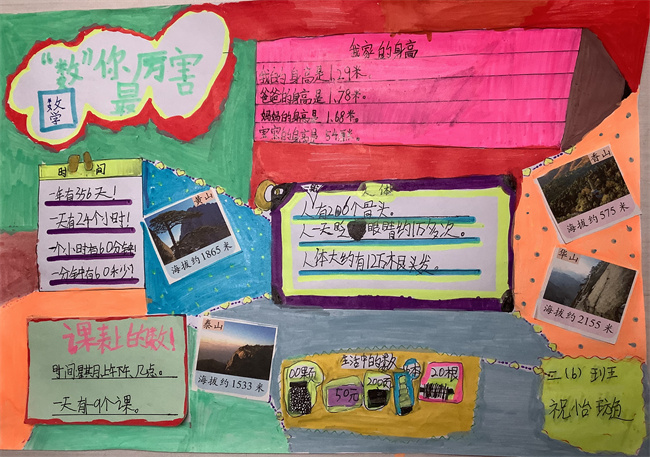 "数"你厉害
最
数学
我家的身高
我的身高是1.29米.
爸爸的身高是1.78米。
妈妈的身高是1.68米。
的身高是54厘米。
时间
一年有356天!
一天有24个小时!
一个小时有60分钟!
一分钟有60米少?
黄山
海拔约1865米
人体
人有206个骨头。
人一天眨眼睛约1万多次。
人体大约有125木艮头发。
香山
海拔约575米
华山
海拔约2155米
课表上的数!
时间星期月上午下午几点。
一天有9个课。
泰山
海拔约1533米
生活中的数
100颗
50元
200克
20根
三(6)班
祝怡